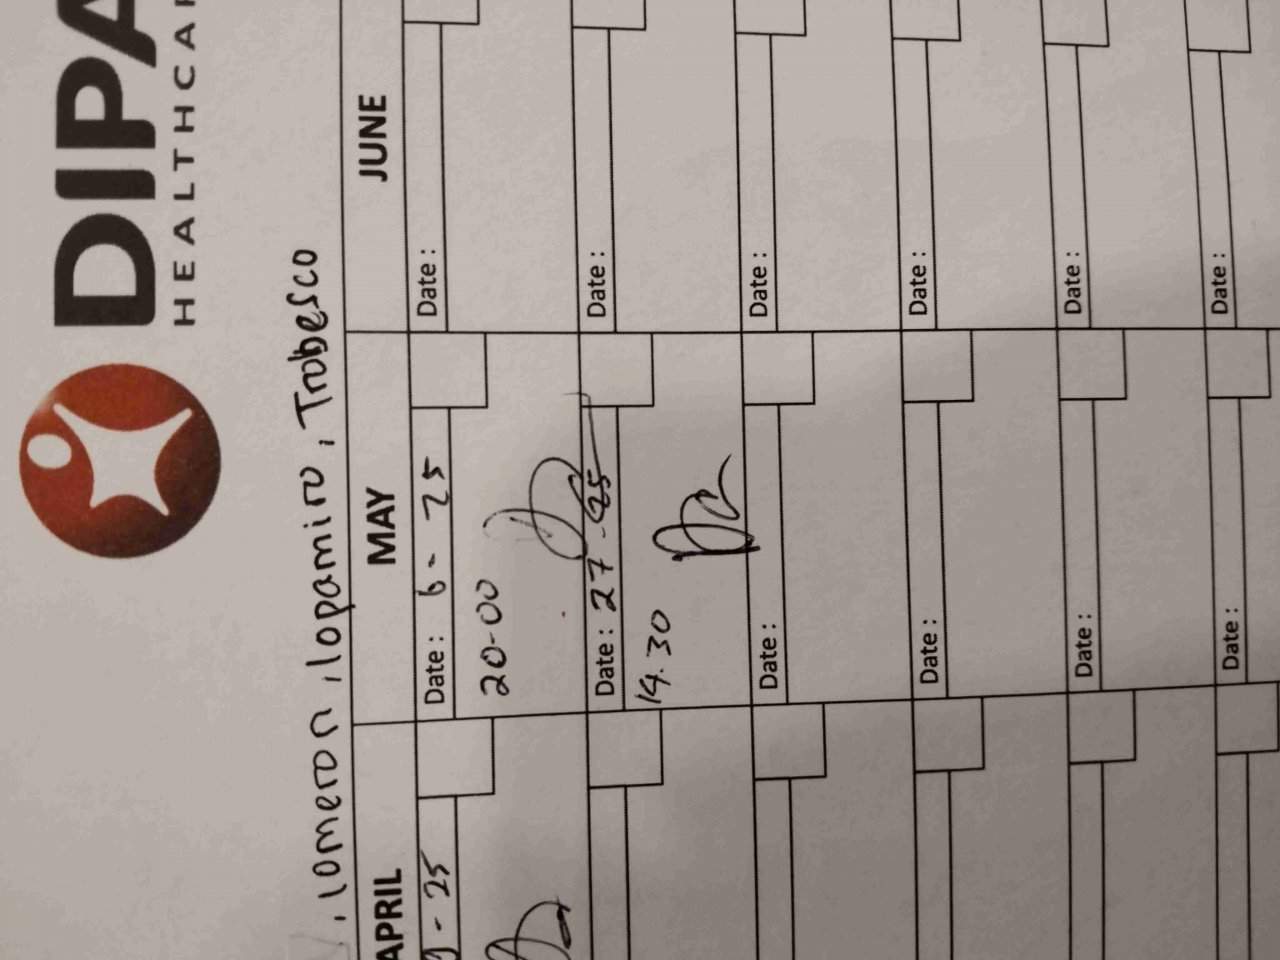 DIPA
HEALTHCAR
, iomeron, iopamiro, Trobesco
APRIL MAY JUNE
- 25 Date : 6 - 25 Date :
20-00
Date : 27 - 25 Date :
14.30
Date : Date :
Date : Date :
Date : Date :
Date : Date :